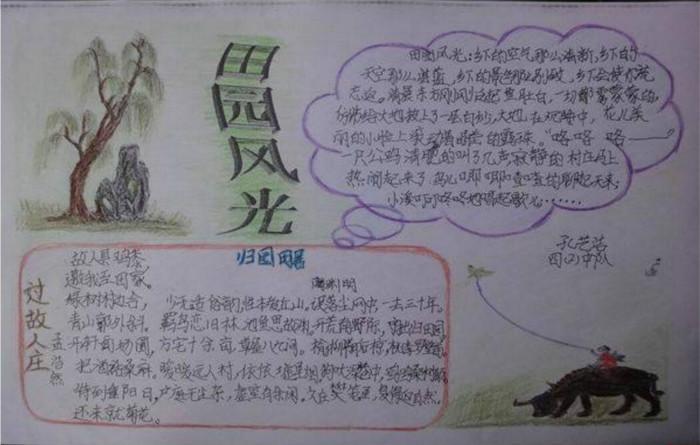 田园风光
田园风光：乡下的空气那么清新，乡下的
天空那么湛蓝，乡下的景色那么别致，乡下会使你流
忘返。清晨东方刚刚泛起鱼肚白，一切都雾蒙蒙的，
仿佛给大地披上了一层白纱，大地在观睡中，花儿美
丽的小脸上滚动着晶莹的露珠。“咯咯 咯——”
一只公鸡清脆的叫了几声寂静的村庄马上
热闹起来了鸟儿唧唧喳喳的聊起天来；
小溪叮叮咚咚地唱起歌儿……
孔艺洁
四(2)中队
过故人庄
孟浩然
故人具鸡黍，
邀我至田家。
绿树村边合，
青山郭外斜。
开轩面场圃，
把酒话桑麻。
待到重阳日，
还来就菊花。
归园田居
陶渊明
少无适俗韵，性本爱丘山，误落尘网中，一去三十年。
羁鸟恋旧林，池鱼思故渊，开荒南野际，守拙归园田
方宅十余亩，草屋八九间。榆柳荫后檐，桃李罗堂前。
暧暧远人村，依依墟里烟。狗吠深巷中，鸡鸣桑树颠。
户庭无尘杂，虚室有余闲。久在樊笼里，复得返自然。